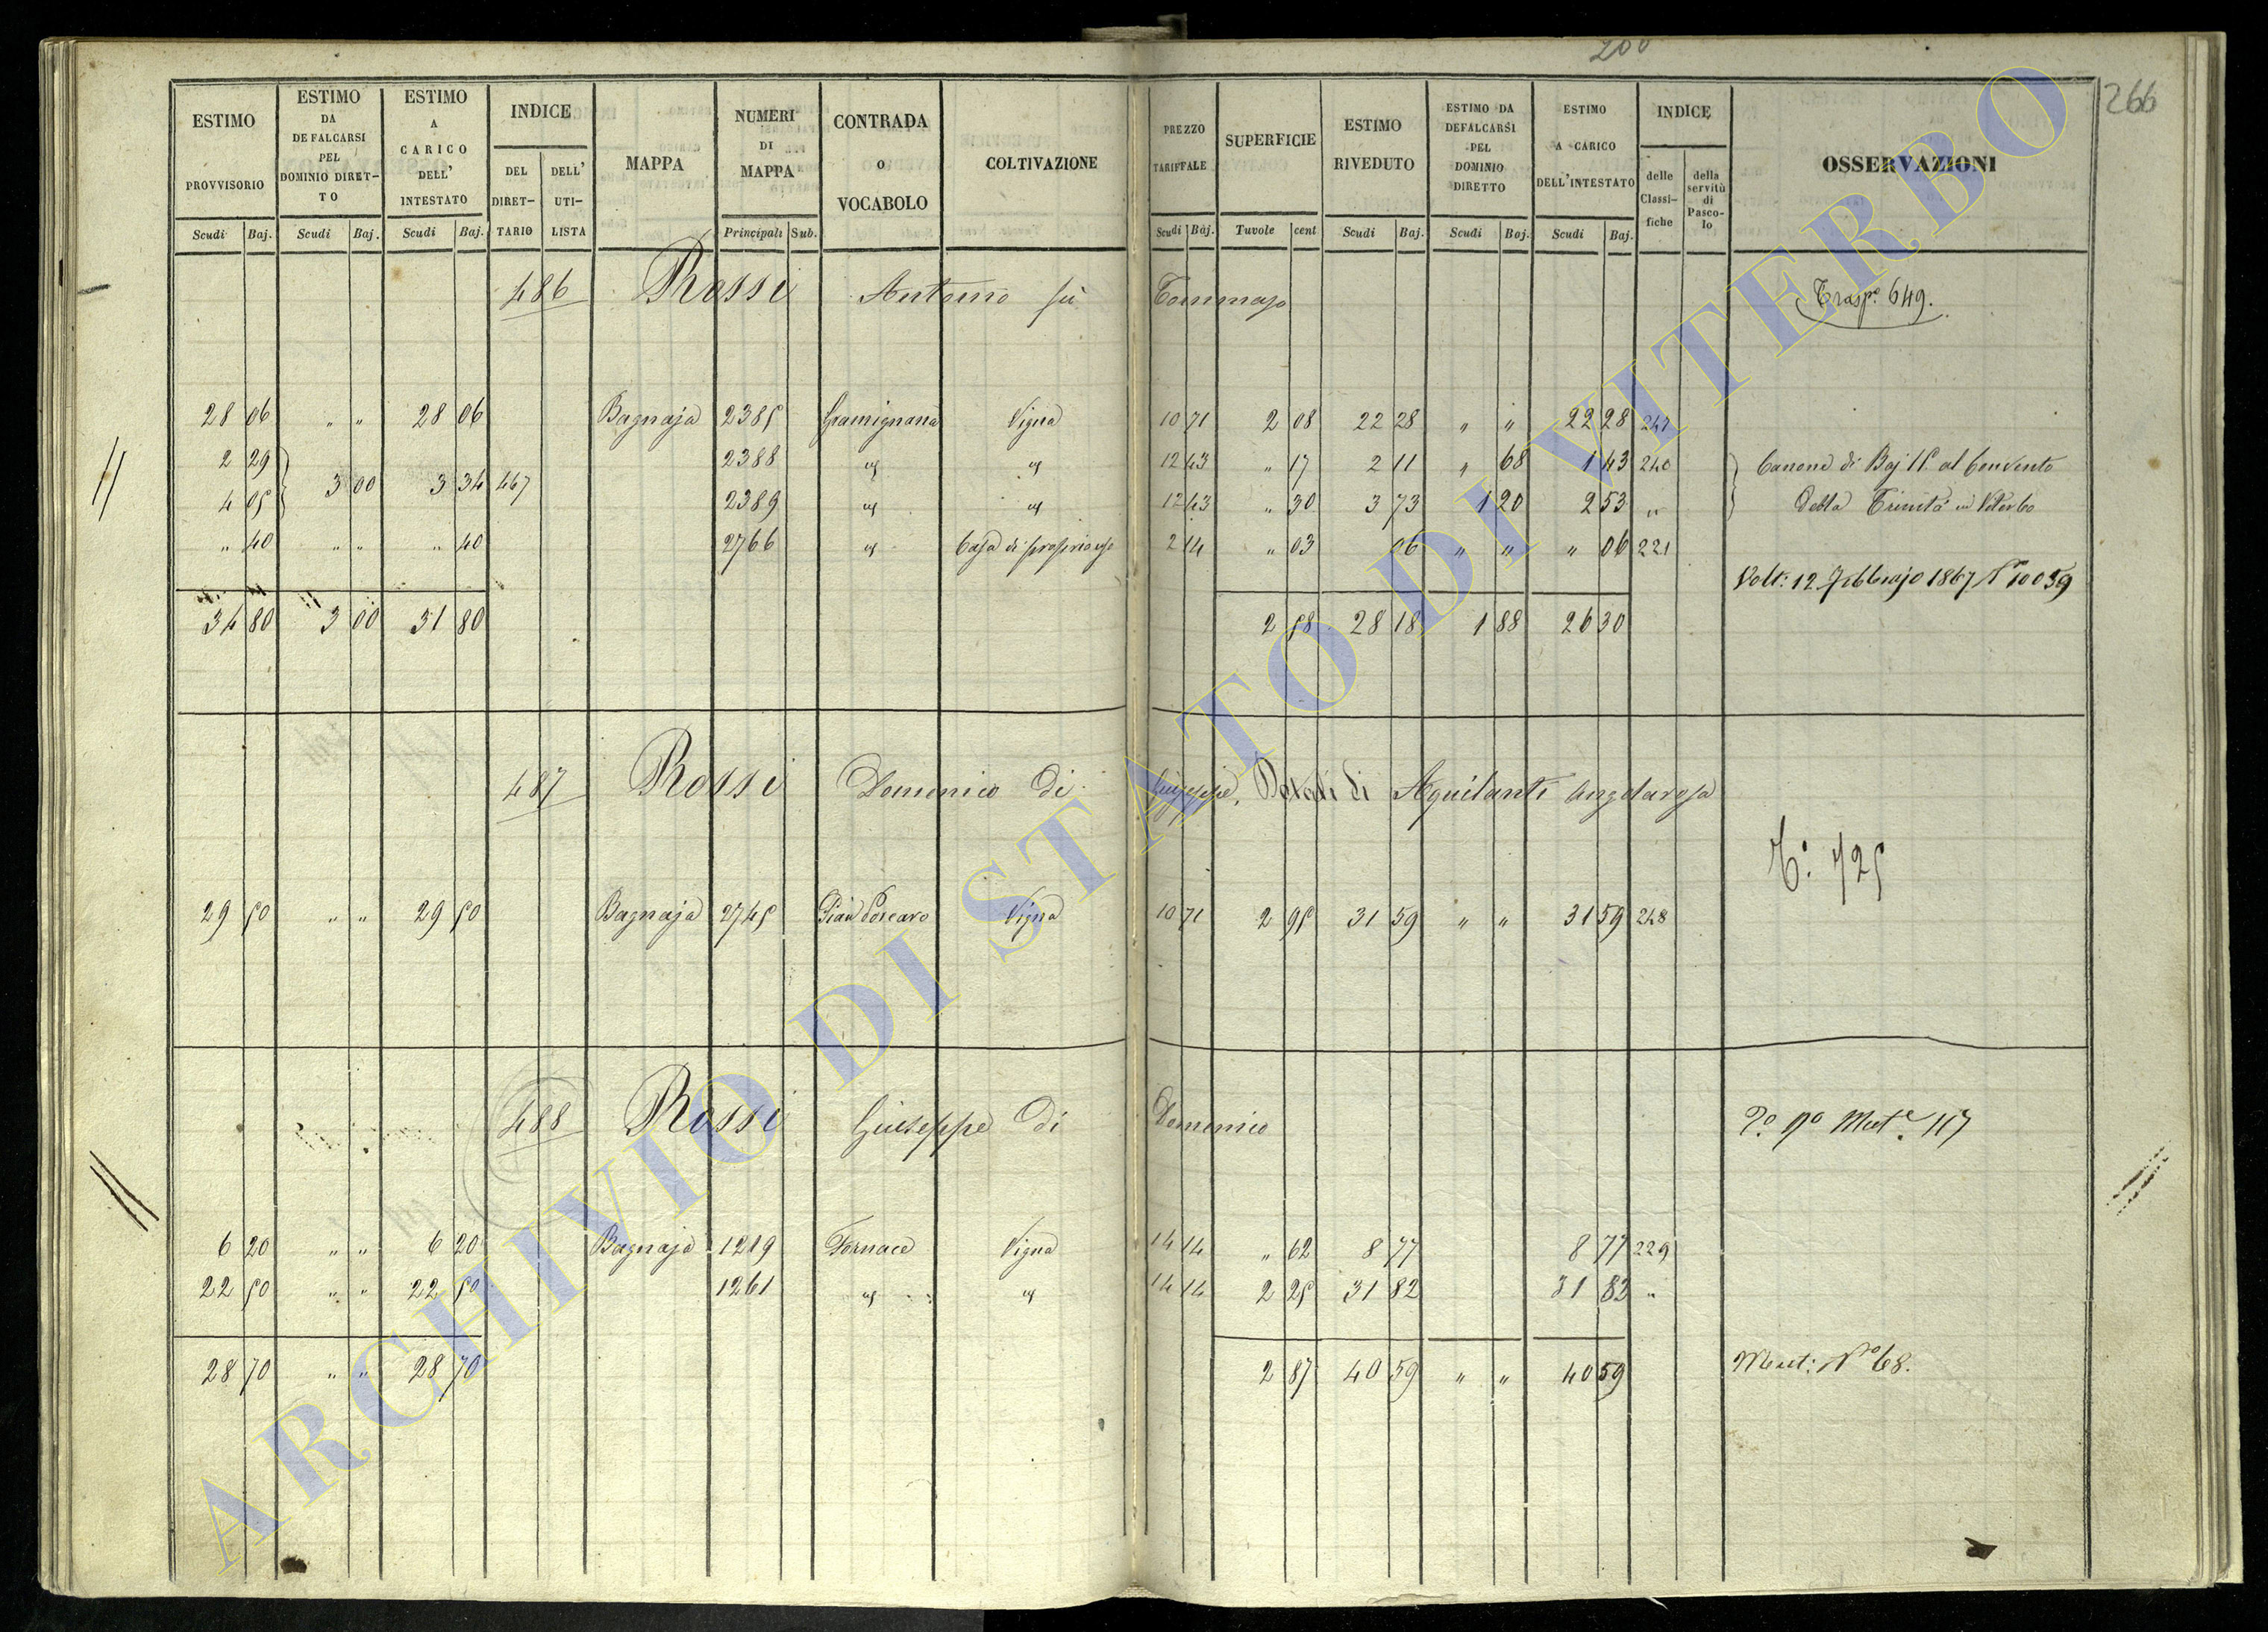 200
266
ESTIMO PROVVISORIO Scudi Baj.
ESTIMO DA DEFALCARSI PEL DOMINIO DIRET-TO Scudi Baj.
ESTIMO A CARICO DELL' INTESTATO Scudi Baj.
INDICE DEL DIRET-TARIO DELL' UTI-LISTA
MAPPA
NUMERI DI MAPPA Principali Sub.
CONTRADA O VOCABOLO
COLTIVAZIONE
PREZZO TARIFFALE Scudi Baj.
SUPERFICIE Tavole cent
ESTIMO RIVEDUTO Scudi Baj.
ESTIMO DA DEFALCARSI PEL DOMINIO DIRETTO Scudi Baj.
ESTIMO A CARICO DELL'INTESTATO Scudi Baj.
INDICE delle Classi-fiche della servitù di Pasco-lo
OSSERVAZIONI
486 Rossi Antonio fù Tommaso Trasp.º 649.
28 06 " " 28 06 Bagnaja 2385 Gramignana Vigna 10 71 2 08 22 28 " " 22 28 247
2 29 2388 " " 12 43 " 17 2 11 " 68 1 43 240 Canone di Baj 15 al Convento
3 00 3 34 467
4 05 2389 " " 12 43 " 30 3 73 1 20 2 53 " della Trinità in Viterbo
" 40 " " " 40 2766 " Casa di proprio uso 2 14 " 03 06 " " " 06 221
Volt: 12 Febbrajo 1867 Nº 10059
34 80 3 00 31 80 2 58 28 18 1 88 26 30
487 Rossi Domenico di Giuseppe, Dotali di Aquilanti Angelarosa
T. 725
29 50 " " 29 50 Bagnaja 2745 Pian Porcaro Vigna 10 71 2 95 31 59 " " 31 59 248
488 Rossi Giuseppe di Domenico Mut.e 117
6 20 " " 6 20 Bagnaja 1219 Fornace Vigna 14 14 " 62 8 77 8 77 229
22 50 " " 22 50 1261 " " 14 14 2 25 31 82 31 82 "
28 70 " " 28 70 2 87 40 59 " " 40 59 Mut: Nº 68.
ARCHIVIO DI STATO DI VITERBO